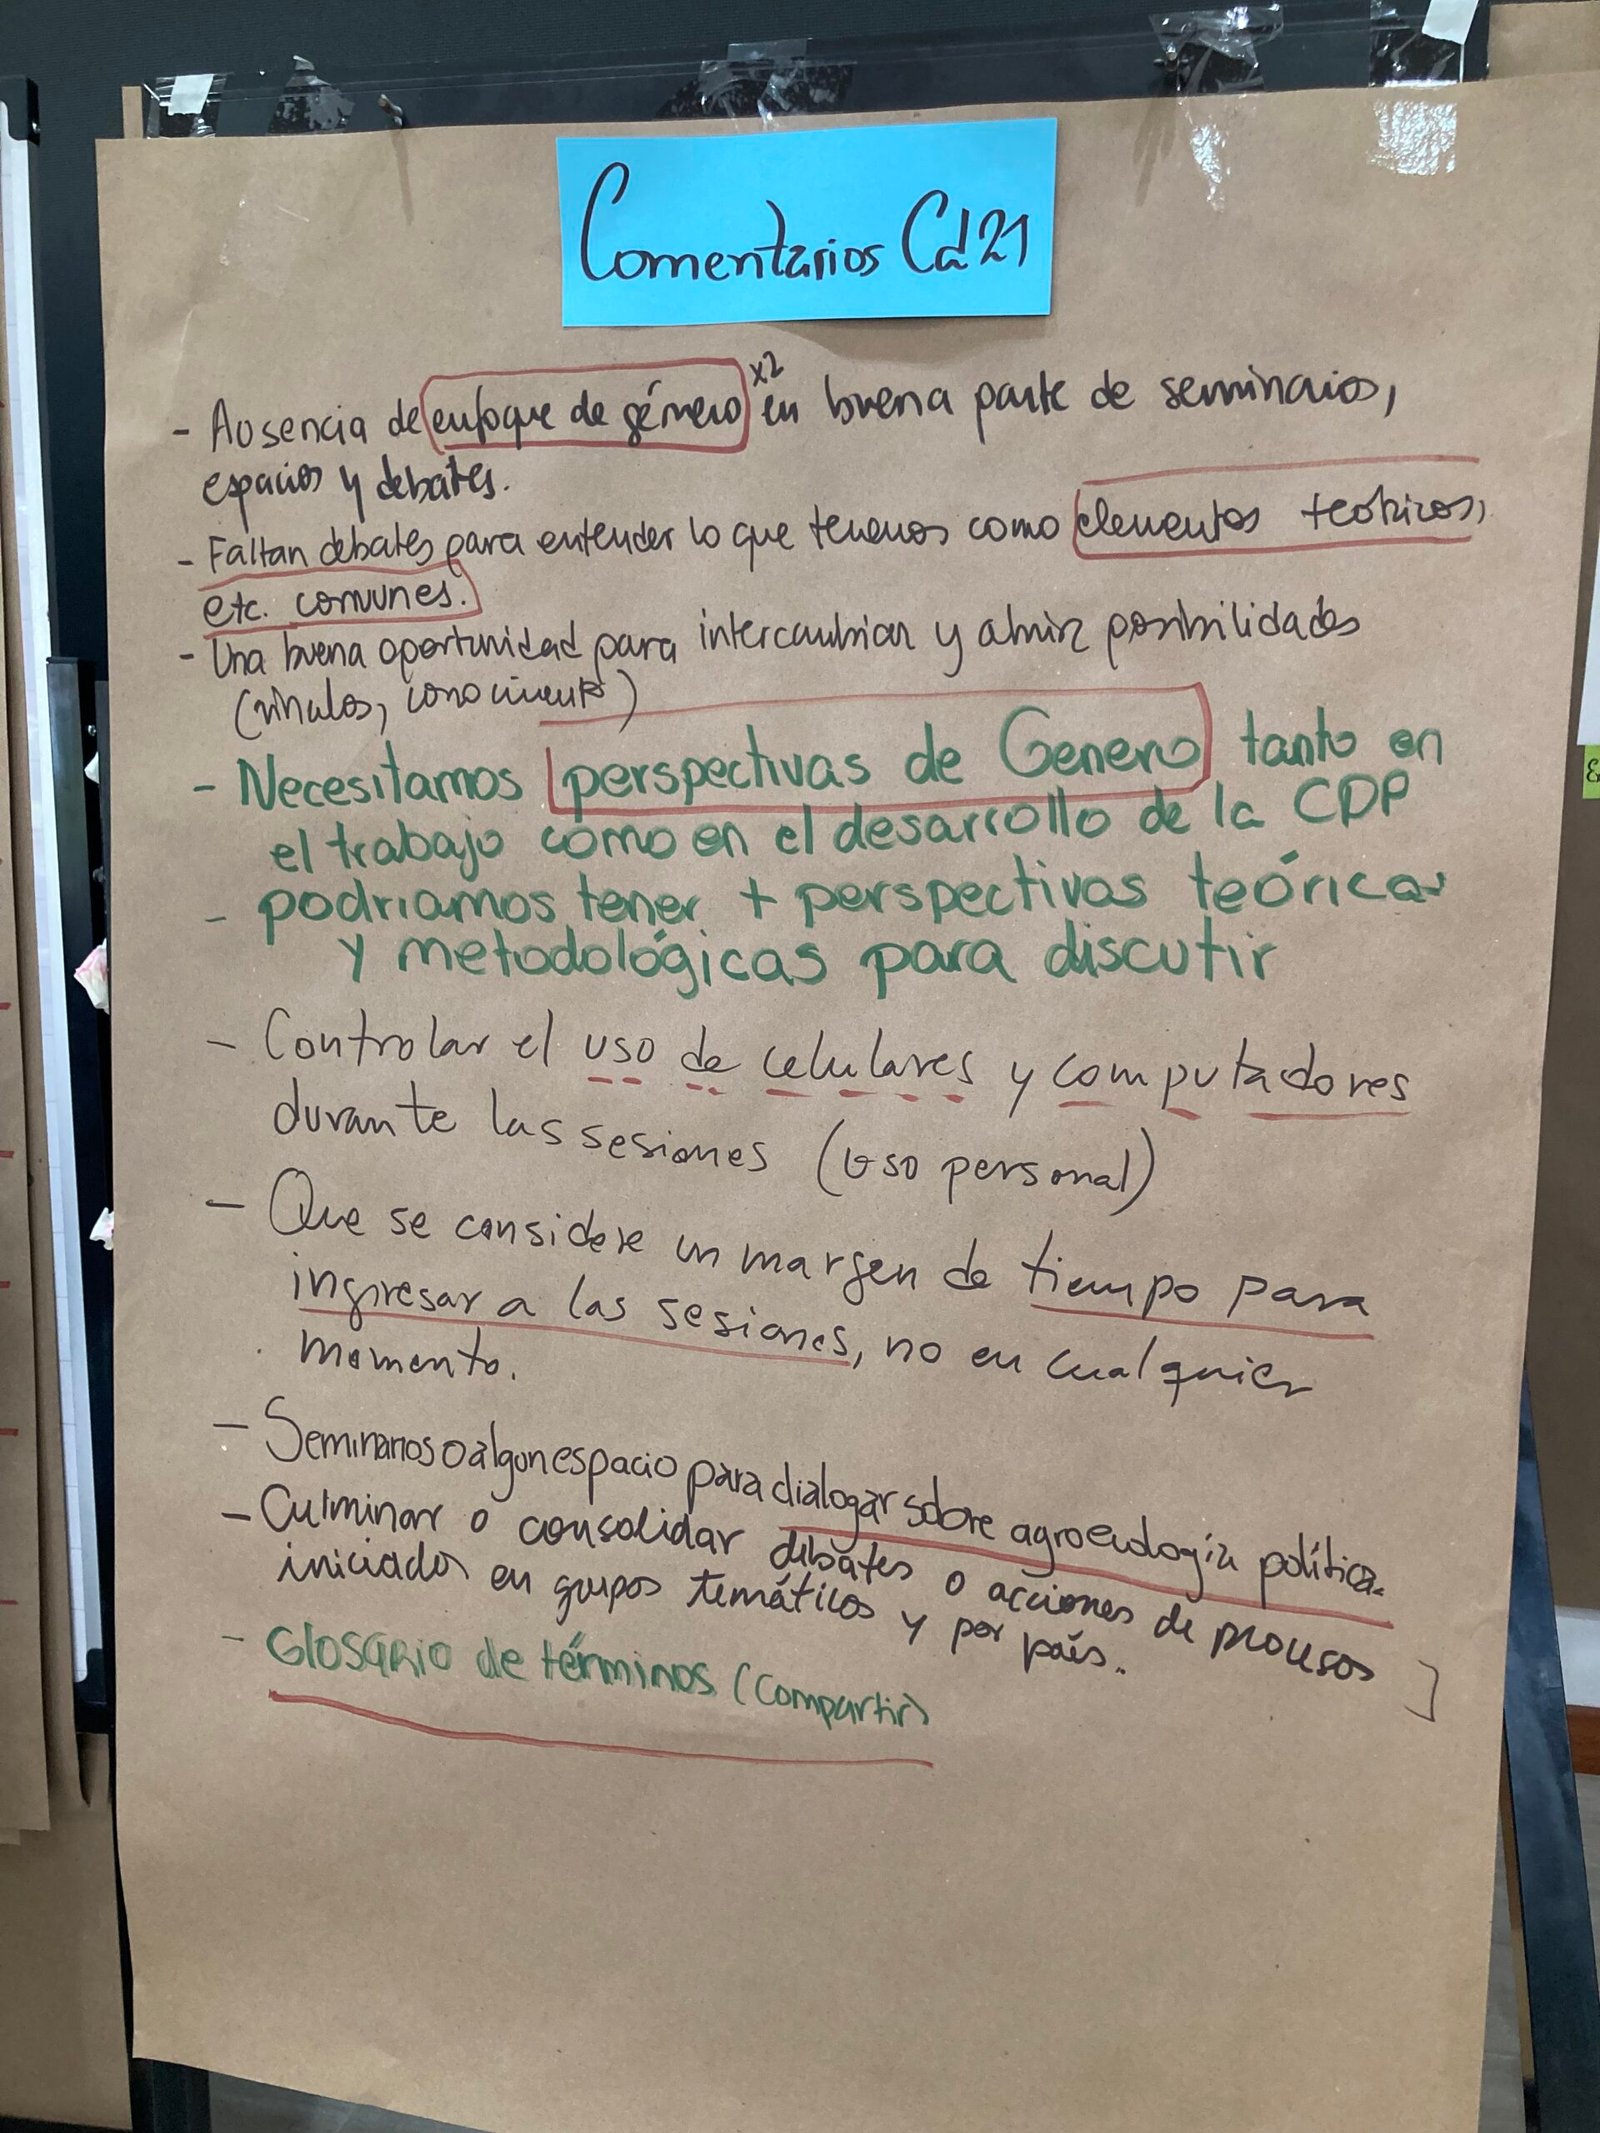 Comentarios Cd21
- Ausencia de enfoque de género x2 en buena parte de seminarios,
espacios y debates.
- Faltan debates para entender lo que tenemos como elementos teóricos,
etc. comunes.
- Una buena oportunidad para intercambiar y abrir posibilidades
(vínculos, conocimiento)
- Necesitamos perspectivas de Genero tanto en
el trabajo como en el desarrollo de la CDP
- podriamos tener + perspectivas teóricas
y metodológicas para discutir
- Controlar el uso de celulares y computadores
durante las sesiones (uso personal)
- Que se considere un margen de tiempo para
ingresar a las sesiones, no en cualquier
momento.
- Seminarios o algun espacio para dialogar sobre agroecología política.
- Culminar o consolidar debates o acciones de procesos
iniciados en grupos temáticos y por país.
- Glosario de términos (compartir)